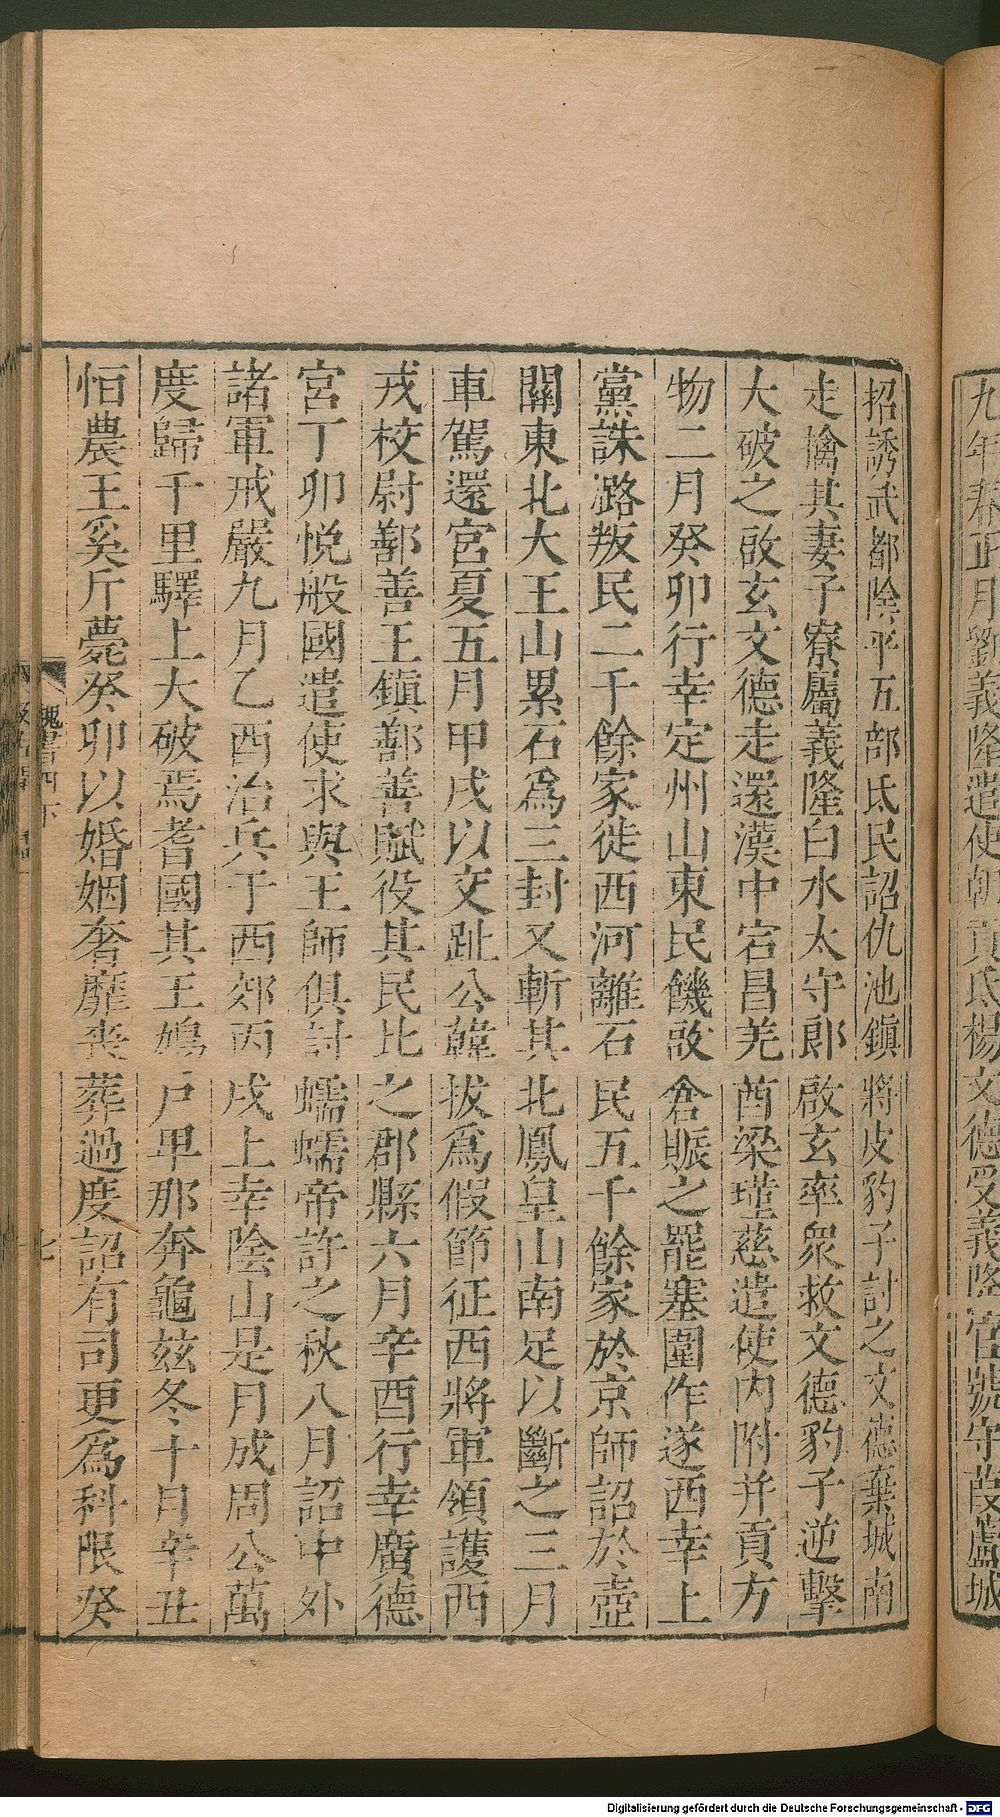 九年春正月劉義隆遣使朝貢氐楊文德受義隆官號守葭蘆城
招誘武都陰平五部氐民詔仇池鎮將皮豹子討之文德棄城南
走擒其妻子寮屬義隆白水太守郎啟玄率衆救文德豹子逆擊
大破之啟玄文德走還漢中宕昌羌酋梁瑾慈遣使內附并貢方
物二月癸卯行幸定州山東民饑啟倉賑之罷塞圍作遂西幸上
黨誅潞叛民二千餘家徙西河離石民五千餘家於京師詔於壺
關東北大王山累石爲三封又斬其北鳳皇山南足以斷之三月
車駕還宮夏五月甲戌以交趾公韓拔爲假節征西將軍領護西
戎校尉鄯善王鎮鄯善賦役其民比之郡縣六月辛酉行幸廣德
宮丁卯悅般國遣使求與王師俱討蠕蠕帝許之秋八月詔中外
諸軍戒嚴九月乙酉治兵于西郊丙戌上幸陰山是月成周公萬
度歸千里驛上大破焉耆國其王鳩尸卑那奔龜茲冬十月辛丑
恒農王奚斤薨癸卯以婚姻奢靡喪葬過度詔有司更爲科限癸
魏書四下
七
Digitalisierung gefördert durch die Deutsche Forschungsgemeinschaft - DFG